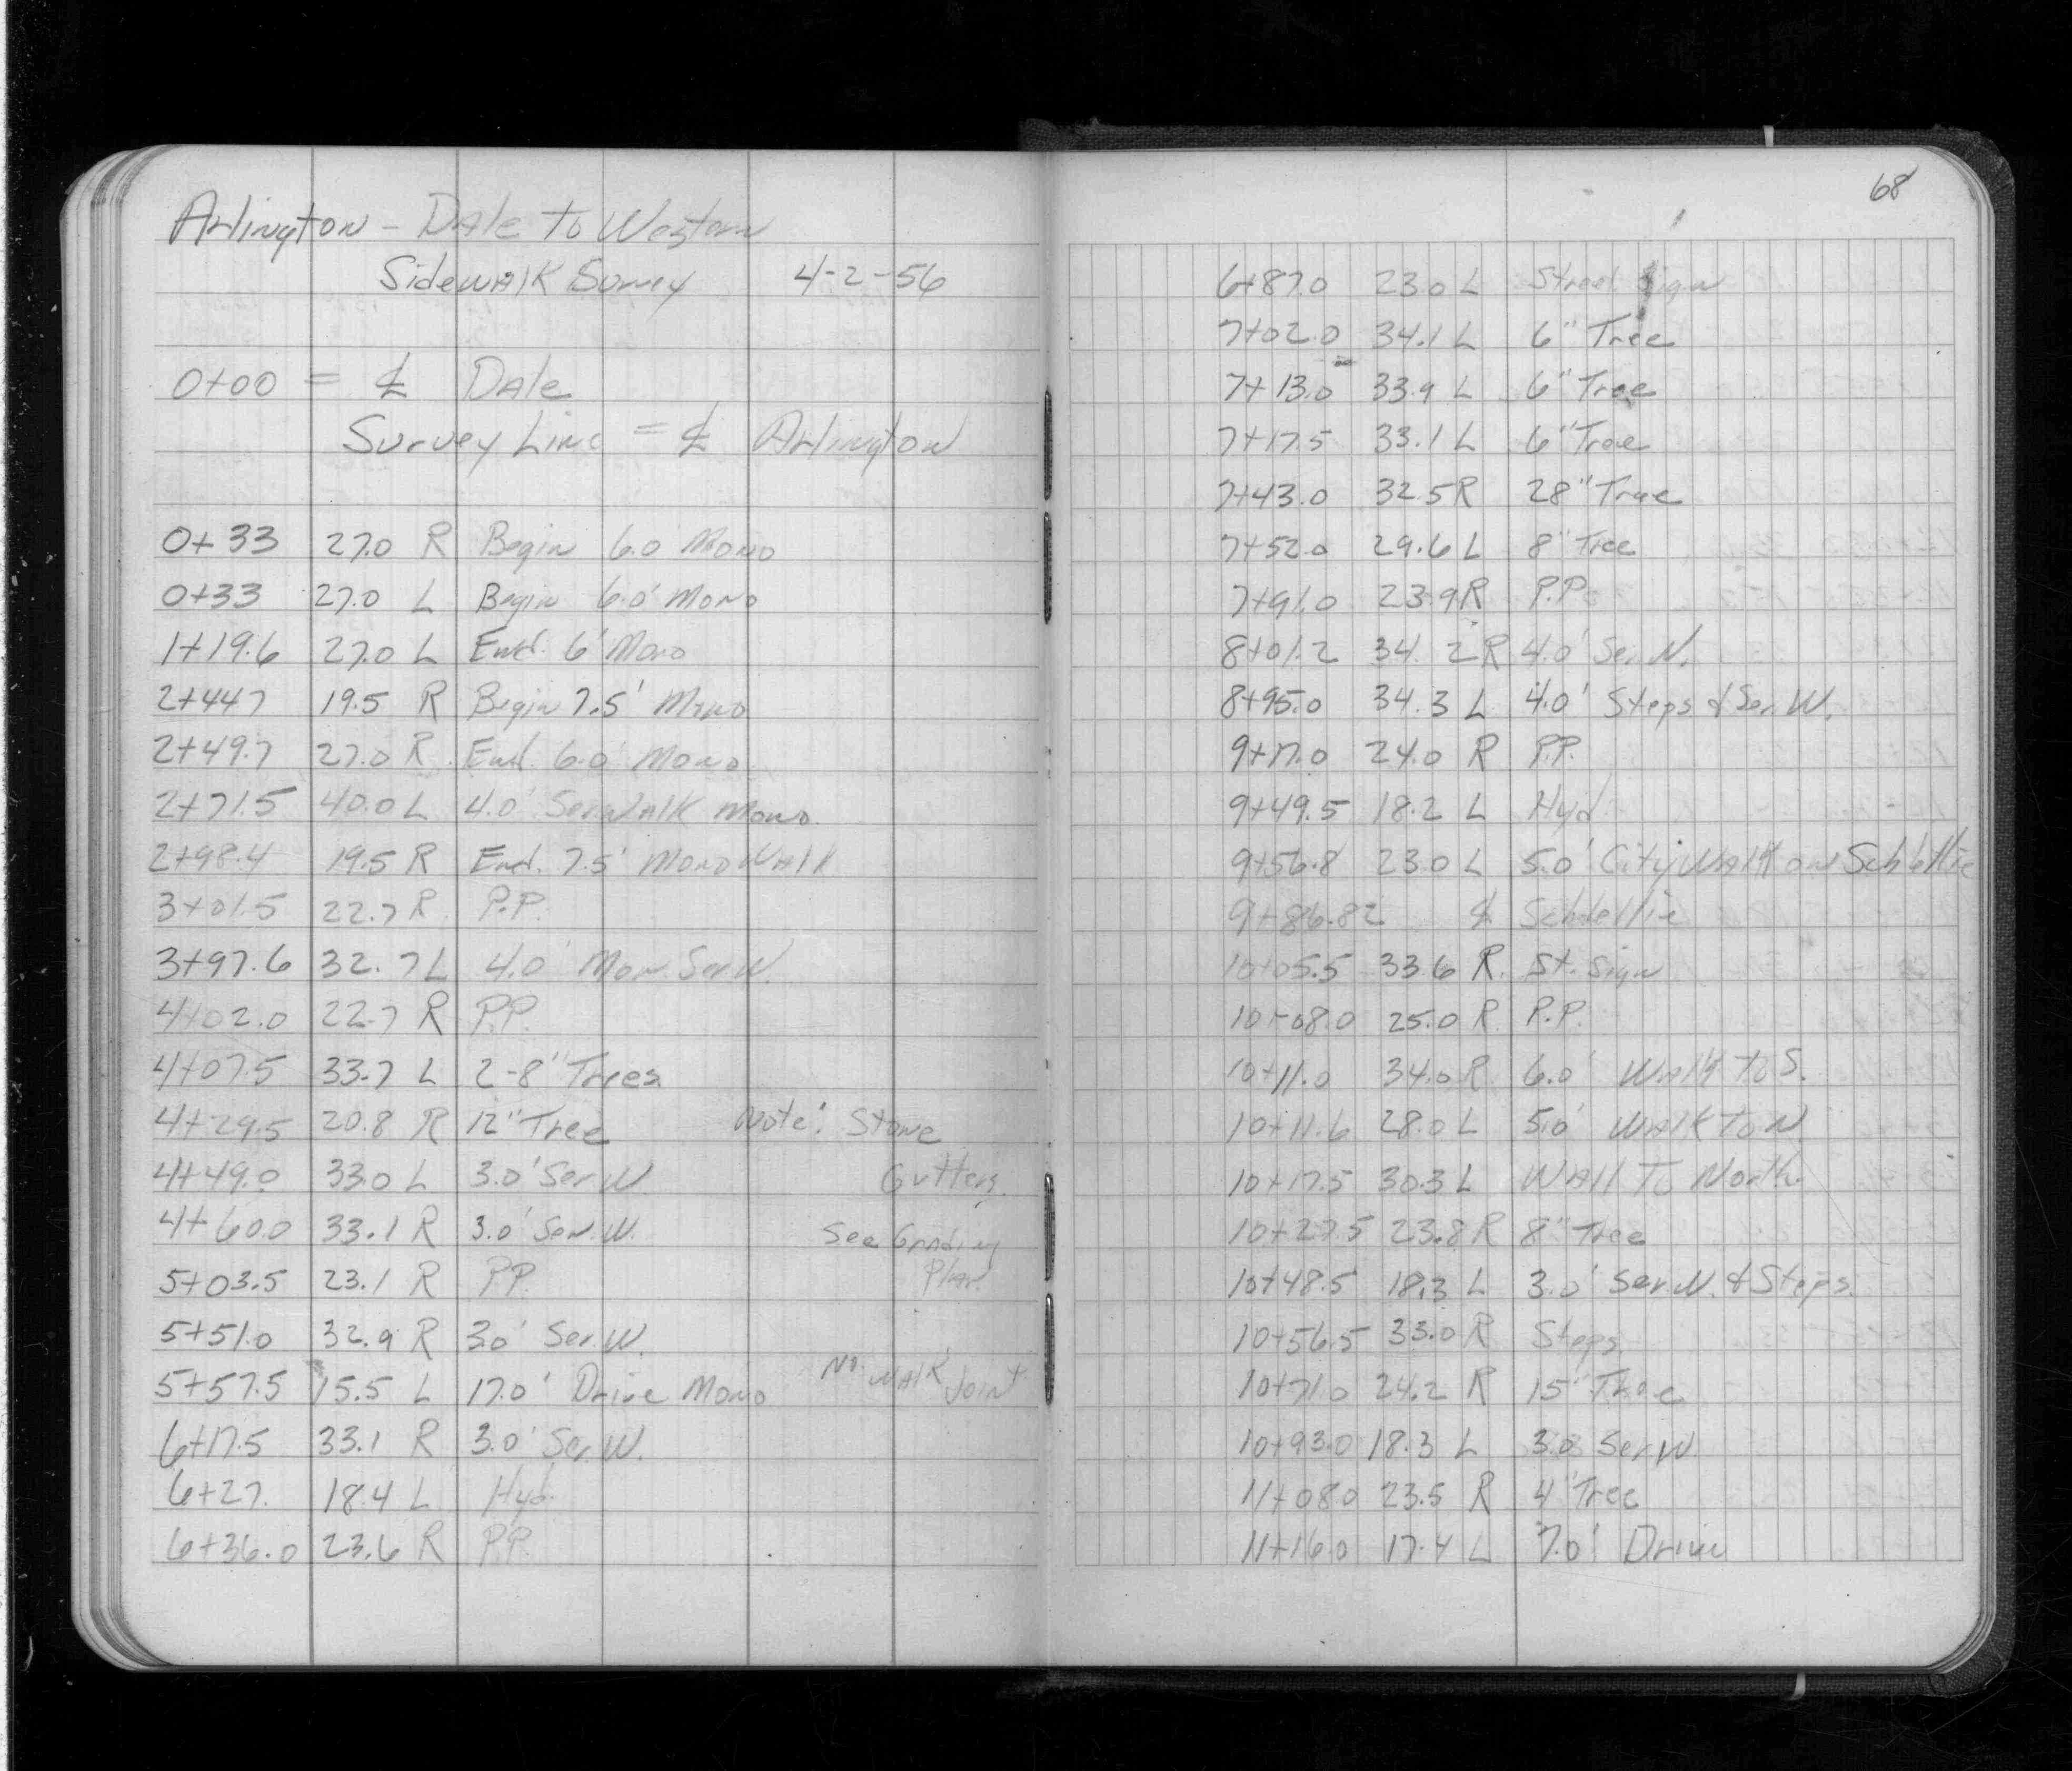 Arlington - Dale to Western
Sidewalk Survey 4-2-56
0+00 = ℄ Dale
Survey Line = ℄ Arlington
0+33 27.0 R Begin 6.0 Mono
0+33 27.0 L Begin 6.0' Mono
1+19.6 27.0 L End. 6' Mono
2+44.7 19.5 R Begin 7.5' Mono
2+49.7 27.0 R End. 6.0' Mono
2+71.5 40.0 L 4.0' Ser. Walk Mono
2+98.4 19.5 R End. 7.5' Mono Walk
3+01.5 22.7 R P.P.
3+97.6 32.7 L 4.0' Mon. Ser. W.
4+02.0 22.7 R P.P.
4+07.5 33.7 L 2-8" Trees
4+29.5 20.8 R 12" Tree Note: Stone
4+49.0 33.0 L 3.0' Ser. W. Gutters.
4+60.0 33.1 R 3.0' Ser. W. See Grading
5+03.5 23.1 R P.P. Plan.
5+51.0 32.9 R 3.0' Ser. W.
5+57.5 15.5 L 17.0' Drive Mono No Walk Joint
6+17.5 33.1 R 3.0' Ser. W.
6+27. 18.4 L Hyd.
6+36.0 23.6 R P.P.
68
6+87.0 23.0 L Street Sign
7+02.0 34.1 L 6" Tree
7+13.0 33.9 L 6" Tree
7+17.5 33.1 L 6" Tree
7+43.0 32.5 R 28" Tree
7+52.0 29.6 L 8" Tree
7+91.0 23.9 R P.P.
8+01.2 34.2 R 4.0' Ser. W.
8+95.0 34.3 L 4.0' Steps & Ser. W.
9+17.0 24.0 R P.P.
9+49.5 18.2 L Hyd.
9+56.8 23.0 L 5.0' City Walk on
9+86.82 ℄
10+05.5 33.6 R. St. Sign
10+08.0 25.0 R P.P.
10+11.0 34.0 R 6.0' Walk to S.
10+11.6 28.0 L 5.0' Walk to N
10+17.5 30.3 L Wall To North.
10+27.5 23.8 R 8" Tree
10+48.5 18.3 L 3.0' Ser. W. & Steps.
10+56.5 33.0 R Steps
10+71.0 24.2 R 15" Tree
10+93.0 18.3 L 3.0 Ser. W.
11+08.0 23.5 R 4" Tree
11+16.0 17.4 L 7.0' Drive